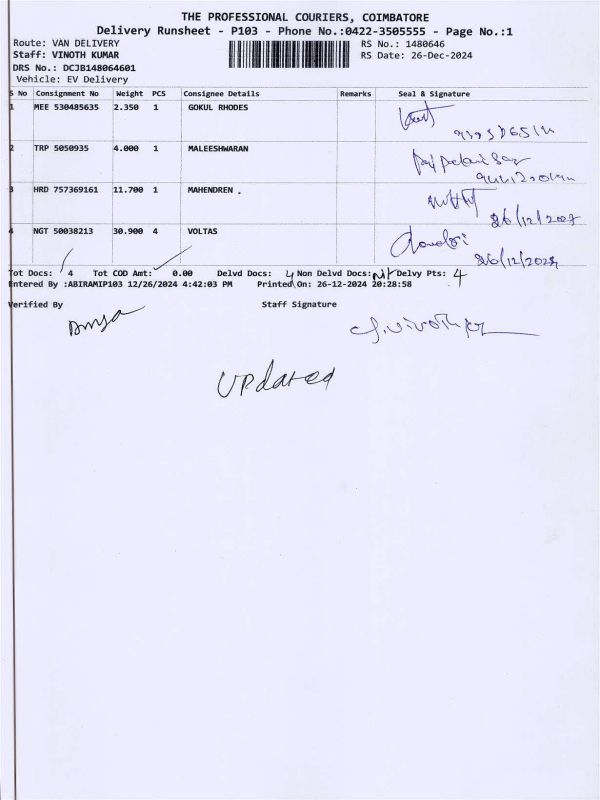 THE PROFESSIONAL COURIERS, COIMBATORE
Delivery Runsheet - P103 - Phone No.:0422-3505555 - Page No.:1
Route: VAN DELIVERY RS No.: 1480646
Staff: VINOTH KUMAR RS Date: 26-Dec-2024
DRS No.: DCJB148064601
Vehicle: EV Delivery
S No Consignment No Weight PCS Consignee Details Remarks Seal & Signature
1 MEE 530485635 2.350 1 GOKUL RHODES
2 TRP 5050935 4.000 1 MALEESHWARAN
3 HRD 757369161 11.700 1 MAHENDREN .
26/12/2024
4 NGT 50038213 30.900 4 VOLTAS
26/12/2024
Tot Docs: 4 Tot COD Amt: 0.00 Delvd Docs: 4 Non Delvd Docs: Nil Delvy Pts: 4
Entered By :ABIRAMIP103 12/26/2024 4:42:03 PM Printed On: 26-12-2024 20:28:58
Verified By Staff Signature
Updated